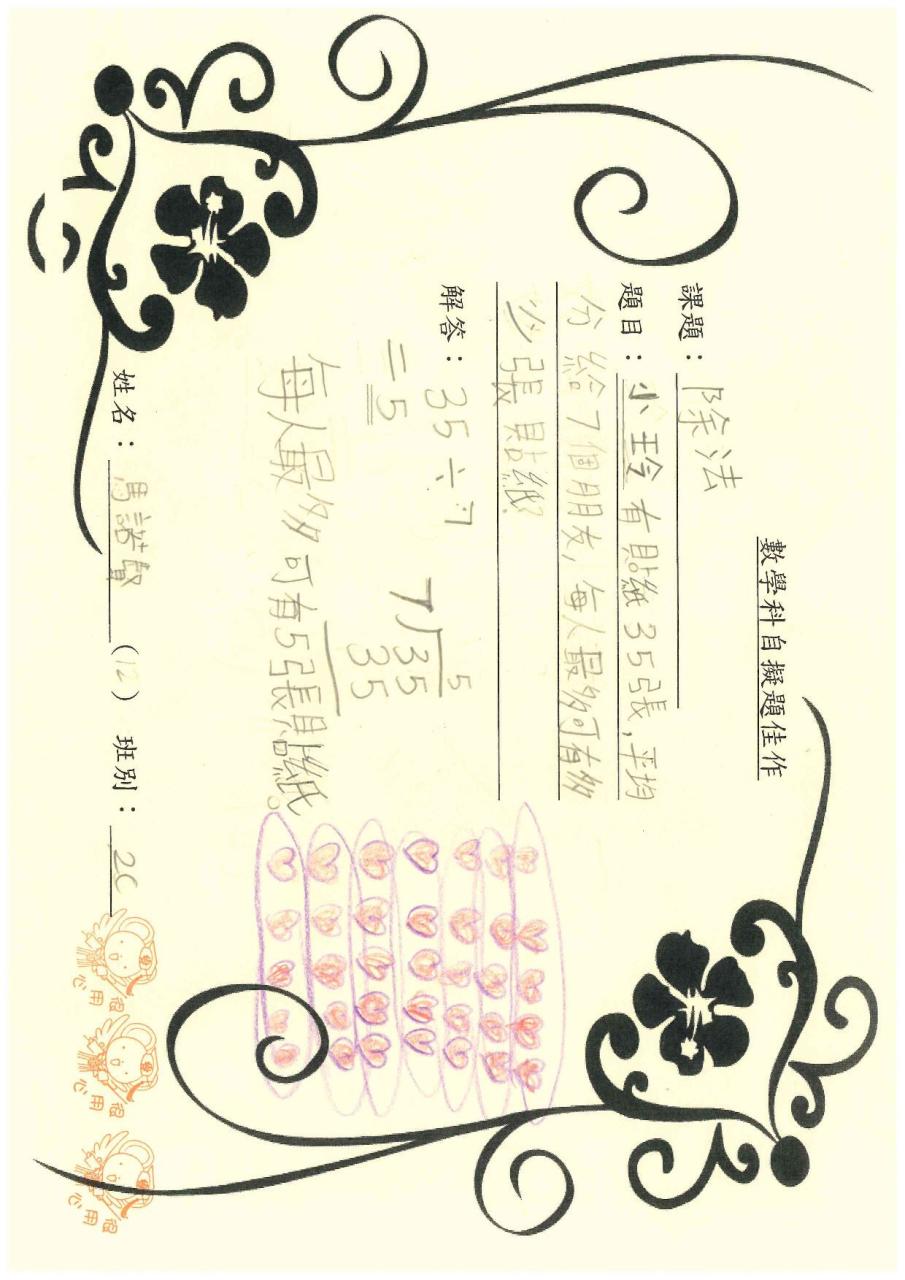 數學科自擬題佳作
課題：除法
題目：小玲有貼紙35張,平均
分給7個朋友,每人最多可有多
少張貼紙?
解答：35÷7
=5
5
7)35
35
每人最多可有5張貼紙。
姓名：馮諾聲 (12) 班別：2C
很用心
很用心
很用心